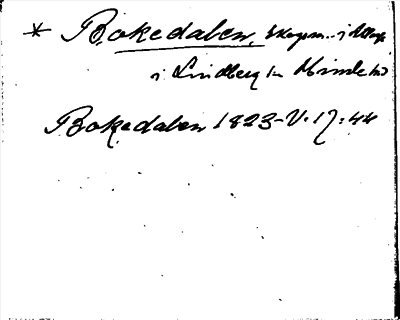 * Bokedalen, skogsm. i Allh
i Lindberg sn Himle hd
Bokedalen 1823 - V. 17: 44